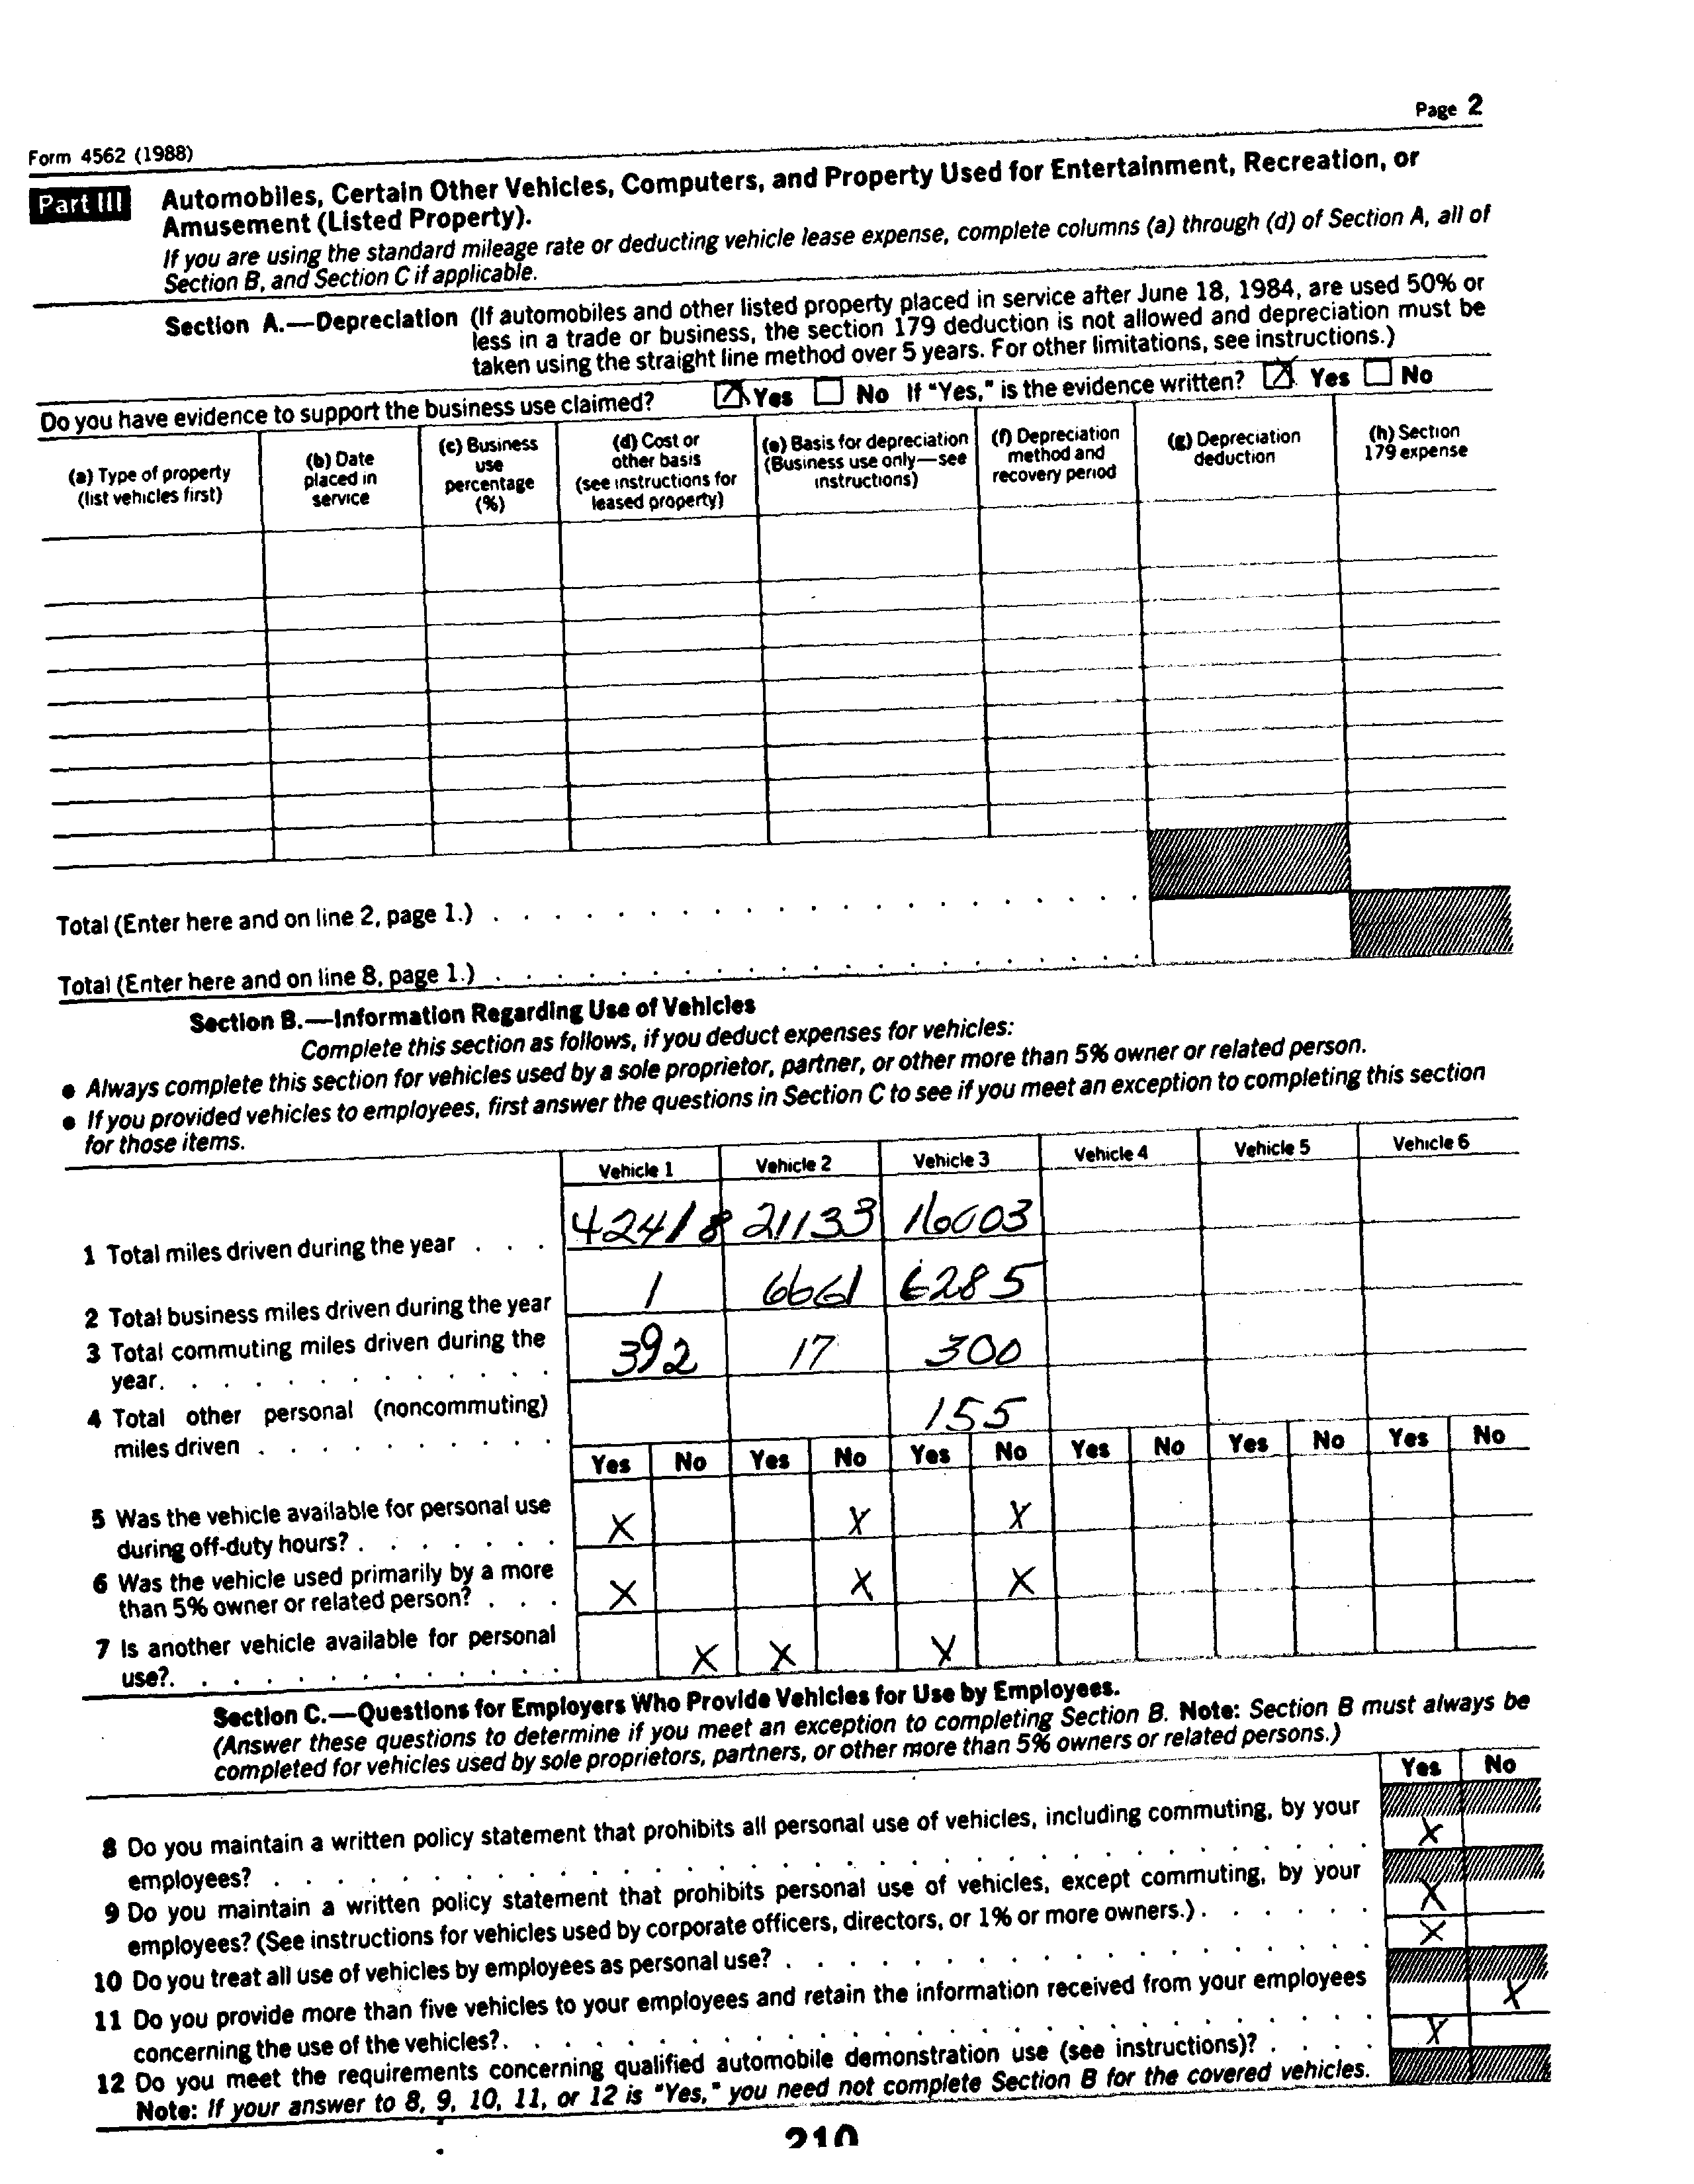 Page 2
Form 4562 (1988)
Part III Automobiles, Certain Other Vehicles, Computers, and Property Used for Entertainment, Recreation, or
Amusement (Listed Property).
If you are using the standard mileage rate or deducting vehicle lease expense, complete columns (a) through (d) of Section A, all of
Section B, and Section C if applicable.
Section A.—Depreciation (If automobiles and other listed property placed in service after June 18, 1984, are used 50% or
less in a trade or business, the section 179 deduction is not allowed and depreciation must be
taken using the straight line method over 5 years. For other limitations, see instructions.)
Do you have evidence to support the business use claimed? X Yes No If "Yes," is the evidence written? X Yes No
(a) Type of property
(list vehicles first)
(b) Date
placed in
service
(c) Business
use
percentage
(%)
(d) Cost or
other basis
(see instructions for
leased property)
(e) Basis for depreciation
(Business use only—see
instructions)
(f) Depreciation
method and
recovery period
(g) Depreciation
deduction
(h) Section
179 expense
Total (Enter here and on line 2, page 1.) . . . . . . . . . . . . . . . . . . . . .
Total (Enter here and on line 8, page 1.) . . . . . . . . . . . . . . . . . . . . .
Section B.—Information Regarding Use of Vehicles
Complete this section as follows, if you deduct expenses for vehicles:
● Always complete this section for vehicles used by a sole proprietor, partner, or other more than 5% owner or related person.
● If you provided vehicles to employees, first answer the questions in Section C to see if you meet an exception to completing this section
for those items.
Vehicle 1 Vehicle 2 Vehicle 3 Vehicle 4 Vehicle 5 Vehicle 6
1 Total miles driven during the year . . . 42418 21133 16003
2 Total business miles driven during the year 1 6661 6285
3 Total commuting miles driven during the
year. . . . . . . . . . . . . 392 17 300
4 Total other personal (noncommuting)
miles driven . . . . . . . . . . 155
Yes No Yes No Yes No Yes No Yes No Yes No
5 Was the vehicle available for personal use
during off-duty hours? . . . . . . . X X X
6 Was the vehicle used primarily by a more
than 5% owner or related person? . . . X X X
7 Is another vehicle available for personal
use?. . . . . . . . . . . . . X X X
Section C.—Questions for Employers Who Provide Vehicles for Use by Employees.
(Answer these questions to determine if you meet an exception to completing Section B. Note: Section B must always be
completed for vehicles used by sole proprietors, partners, or other more than 5% owners or related persons.)
Yes No
8 Do you maintain a written policy statement that prohibits all personal use of vehicles, including commuting, by your
employees? . . . . . . . . . . . . . . . . . . . . . . . . . X
9 Do you maintain a written policy statement that prohibits personal use of vehicles, except commuting, by your
employees? (See instructions for vehicles used by corporate officers, directors, or 1% or more owners.) . . . . . . X
10 Do you treat all use of vehicles by employees as personal use? . . . . . . . . . . . . . . . X
11 Do you provide more than five vehicles to your employees and retain the information received from your employees
concerning the use of the vehicles?. . . . . . . . . . . . . . . . . . . . . X
12 Do you meet the requirements concerning qualified automobile demonstration use (see instructions)? . . . . X
Note: If your answer to 8, 9, 10, 11, or 12 is "Yes," you need not complete Section B for the covered vehicles.
210